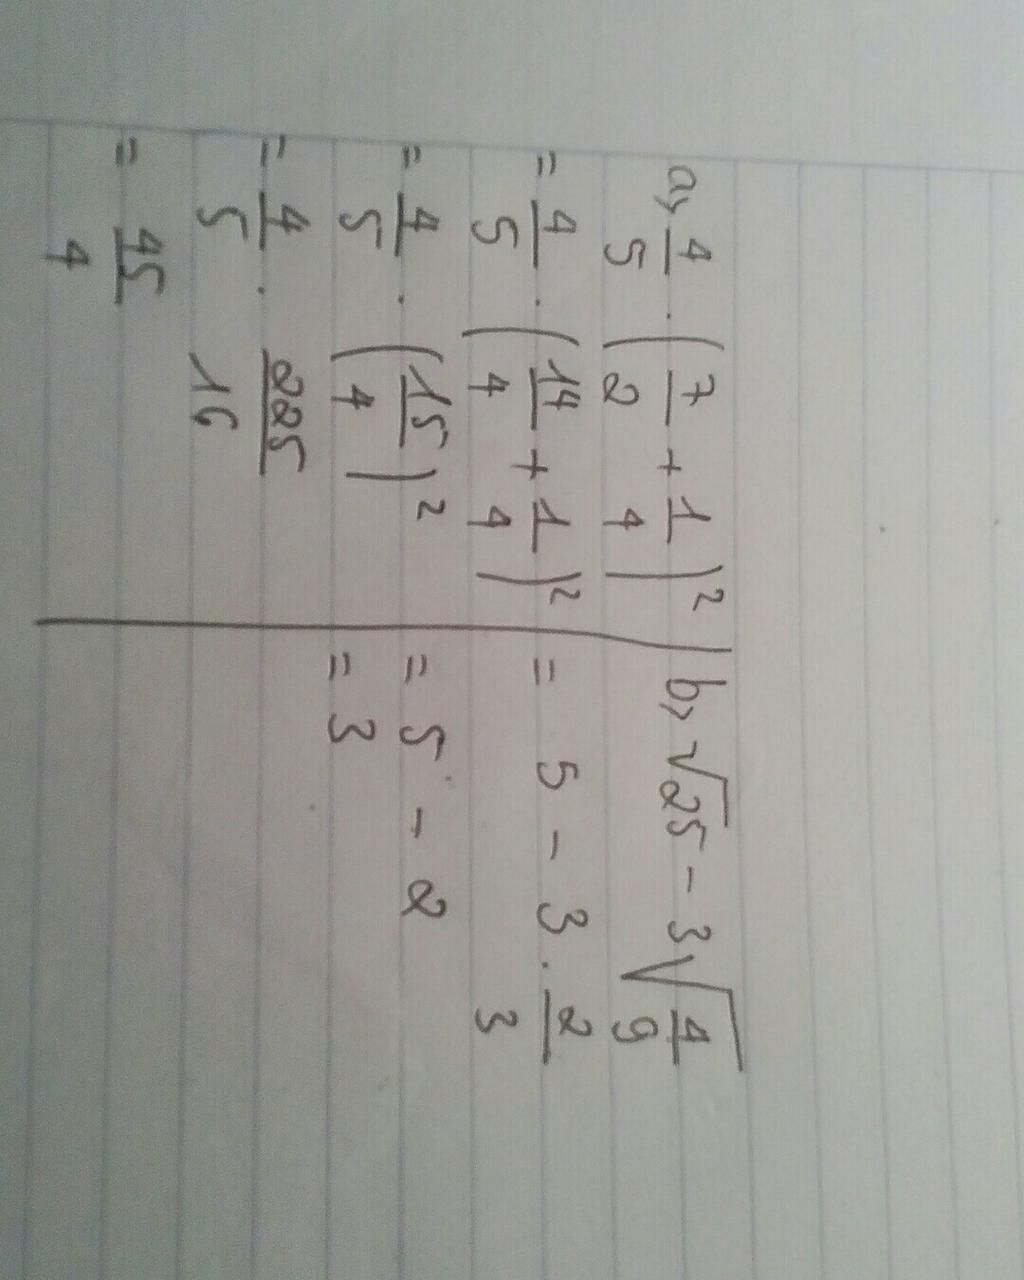 a, 4/5 . (7/2 + 1/4)²
= 4/5 . (14/4 + 1/4)²
= 4/5 . (15/4)²
= 4/5 . 225/16
= 45/4
b, √25 - 3√(4/9)
= 5 - 3 . 2/3
= 5 - 2
= 3